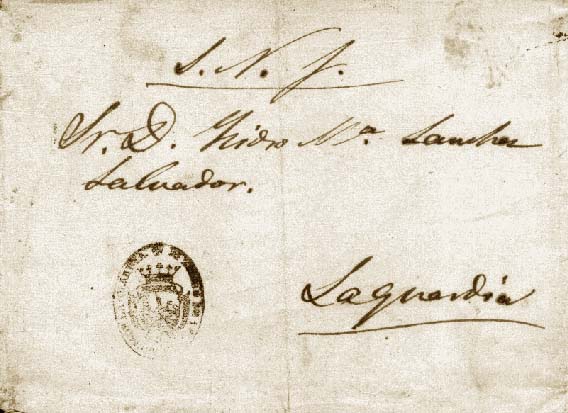 S. N. J.
Sr. D. Ysidro Mª. Sanchez
Salvador.
Laguardia